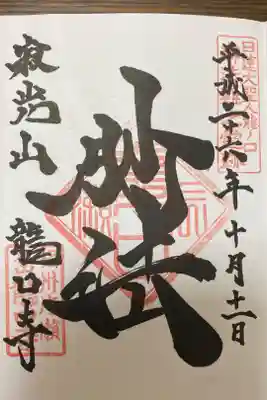 平成二十六年十月十一日
日蓮大聖人龍ノ口
妙法
寂光山 龍口寺